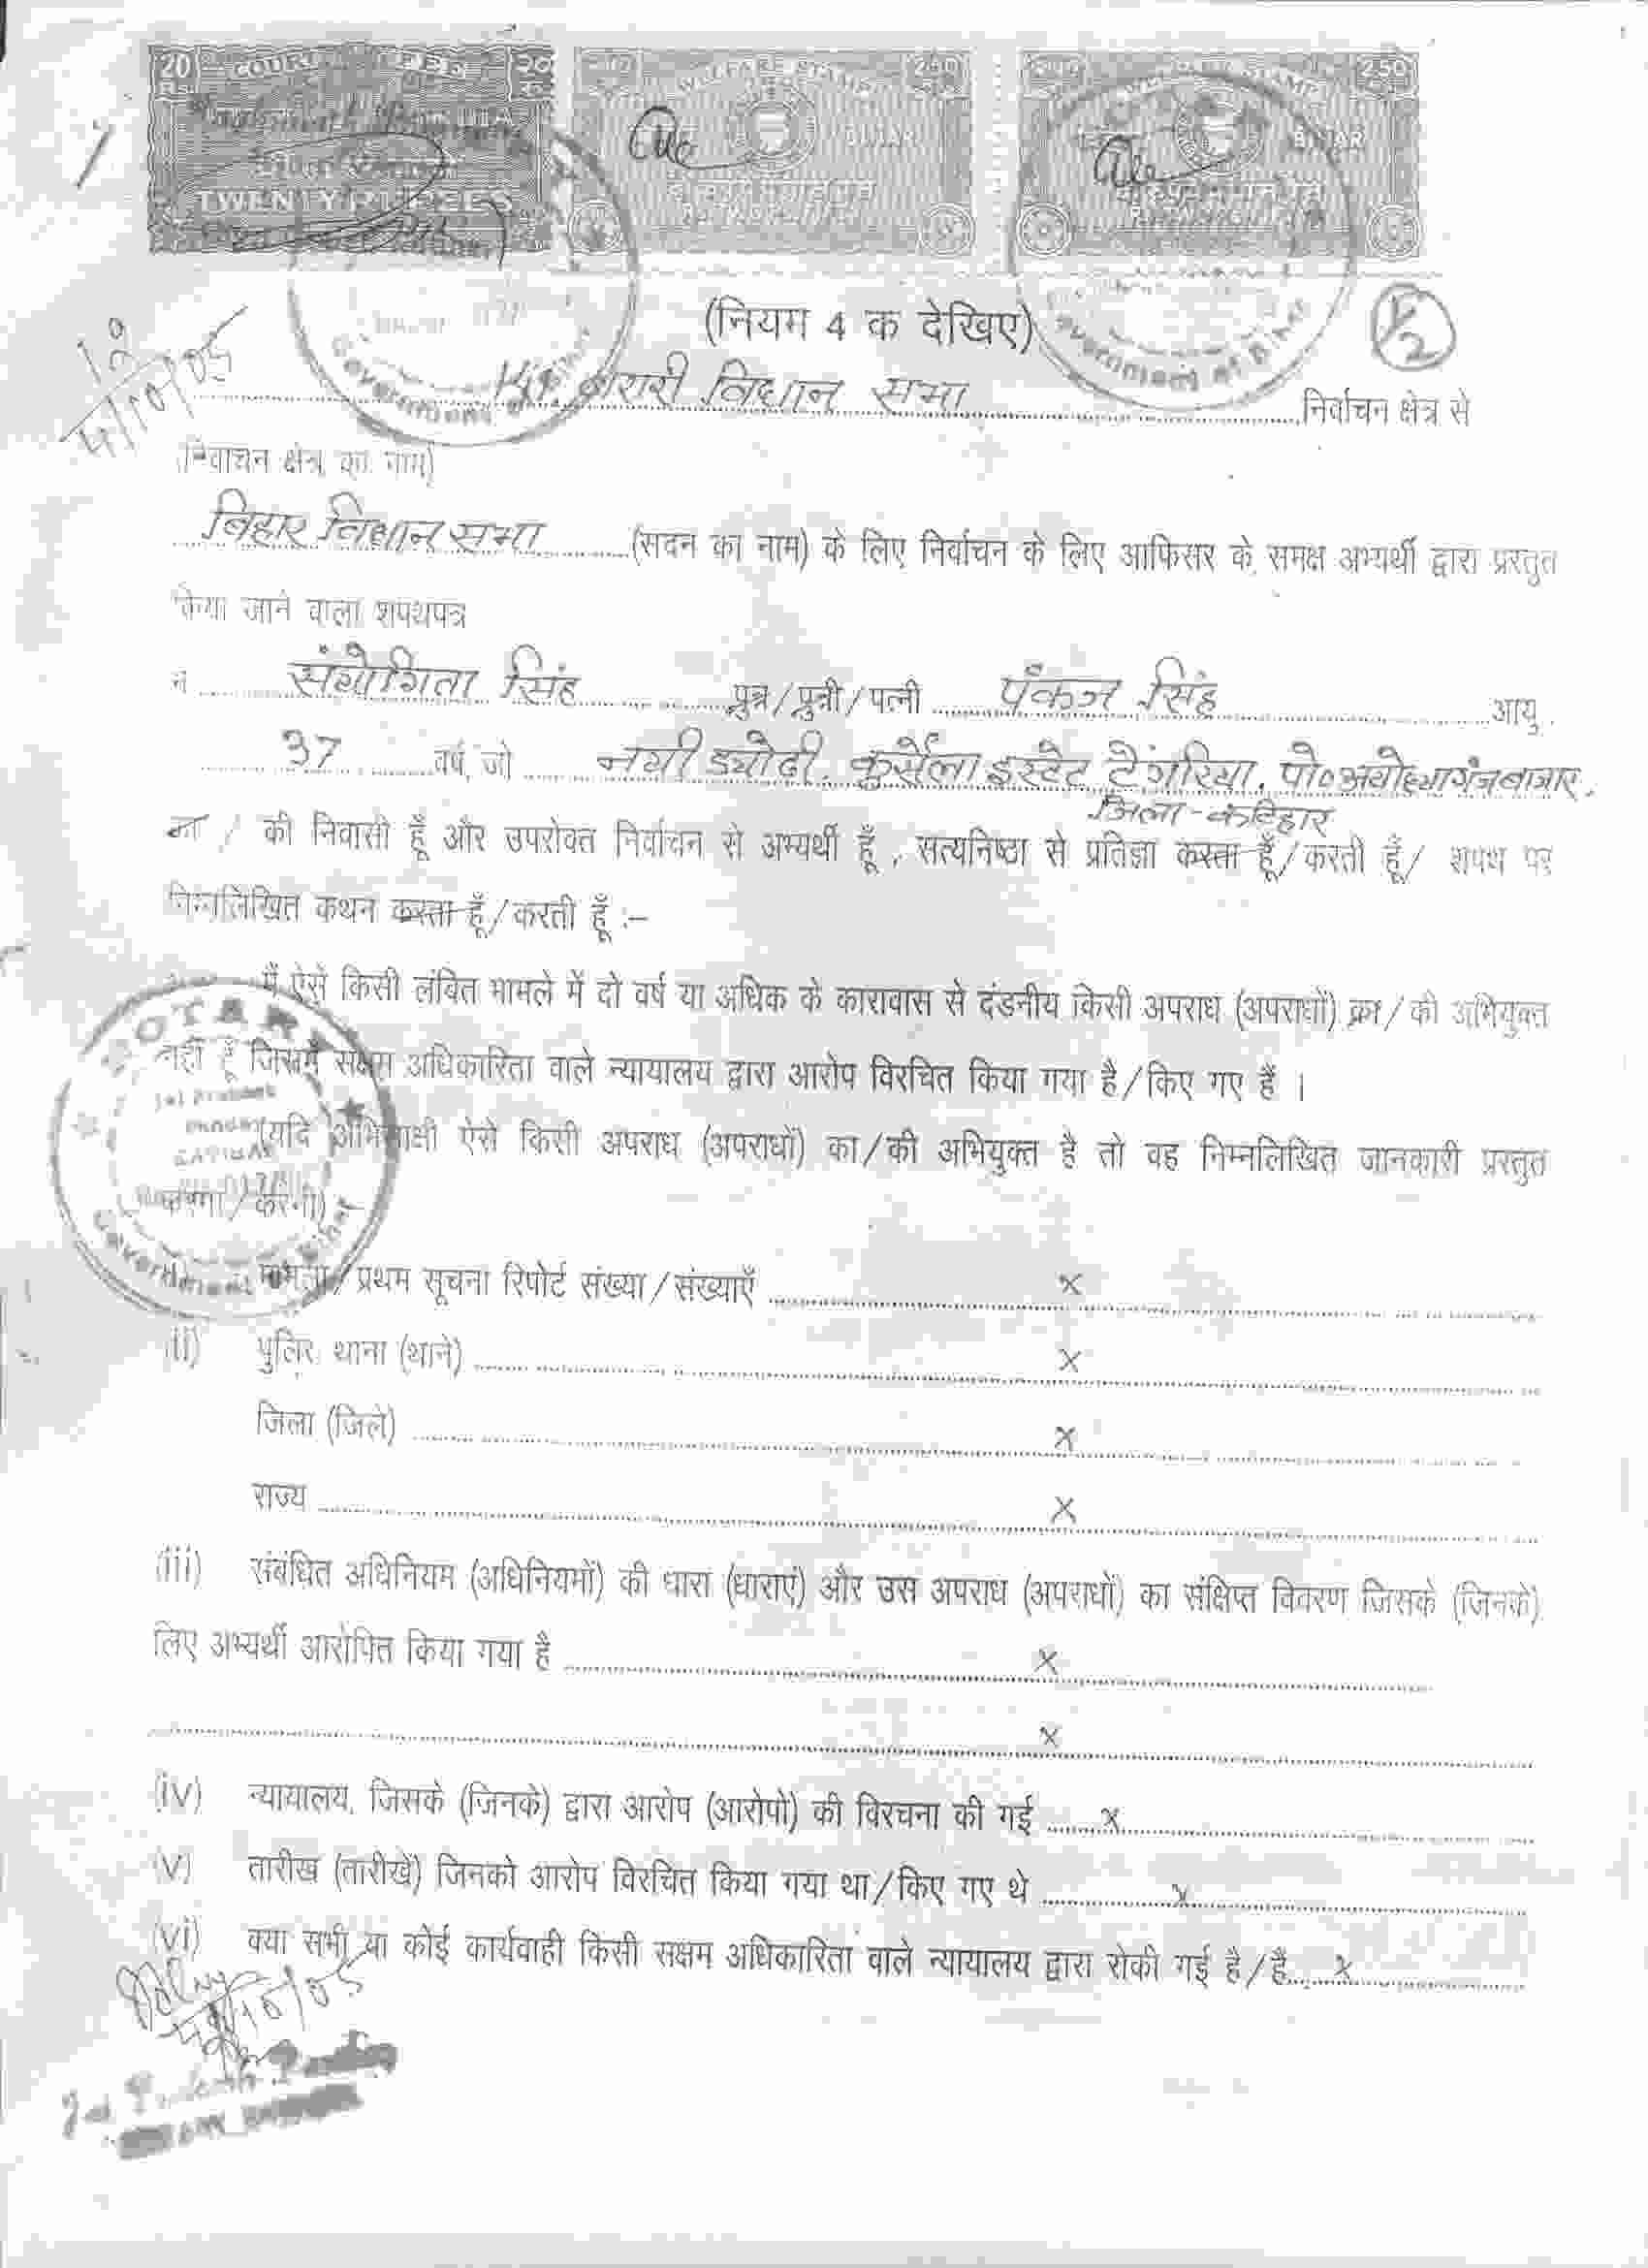 20 COURT FEE 20
Rs.
TWENTY RUPEES
WELFARE STAMP 2.50
BIHAR
WELFARE STAMP 2.50
BIHAR
(नियम 4 क देखिए)
4/10/05
बरारी विधान सभा निर्वाचन क्षेत्र से
(निर्वाचन क्षेत्र का नाम)
बिहार विधान सभा (सदन का नाम) के लिए निर्वाचन के लिए आफिसर के समक्ष अभ्यर्थी द्वारा प्रस्तुत
किया जाने वाला शपथपत्र
मैं संयोगिता सिंह पुत्र/पुत्री/पत्नी पंकज सिंह आयु
37 वर्ष, जो नयी ड्योढी, कुर्सेला इस्टेट टेंगरिया, पो० अयोध्यागंज बाजार,
जिला-कटिहार
का / की निवासी हूँ और उपरोक्त निर्वाचन से अभ्यर्थी हूँ, सत्यनिष्ठा से प्रतिज्ञा करता हूँ/करती हूँ/ शपथ पर
निम्नलिखित कथन करता हूँ/करती हूँ :–
मैं ऐसे किसी लंबित मामले में दो वर्ष या अधिक के कारावास से दंडनीय किसी अपराध (अपराधों) का/की अभियुक्त
नहीं हूँ जिसमें सक्षम अधिकारिता वाले न्यायालय द्वारा आरोप विरचित किया गया है/किए गए हैं ।
(यदि अभिसाक्षी ऐसे किसी अपराध (अपराधों) का/की अभियुक्त है तो वह निम्नलिखित जानकारी प्रस्तुत
करेगा/करेगी)
NOTARY
Government of Bihar
मामला/प्रथम सूचना रिपोर्ट संख्या/संख्याएँ x
(ii) पुलिस थाना (थाने) x
जिला (जिले) x
राज्य x
(iii) संबंधित अधिनियम (अधिनियमों) की धारा (धाराएं) और उस अपराध (अपराधों) का संक्षिप्त विवरण जिसके (जिनके)
लिए अभ्यर्थी आरोपित किया गया है x
x
(iv) न्यायालय, जिसके (जिनके) द्वारा आरोप (आरोपों) की विरचना की गई x
(v) तारीख (तारीखें) जिनको आरोप विरचित किया गया था/किए गए थे x
(vi) क्या सभी या कोई कार्यवाही किसी सक्षम अधिकारिता वाले न्यायालय द्वारा रोकी गई है/हैं x
4/10/05